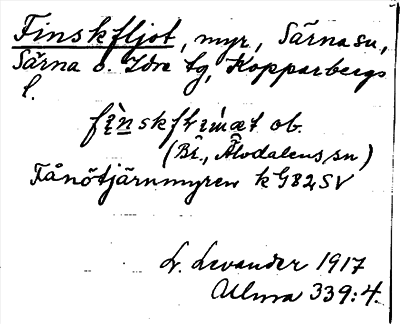 Finskfljot, myr, Särna sn,
Särna o. Idre tg, Kopparbergs
l.
ob.
(Bl., Älvdalens sn)
Tånötjärnmyren k G82 SV
L. Levander 1917
Ulma 339:4.